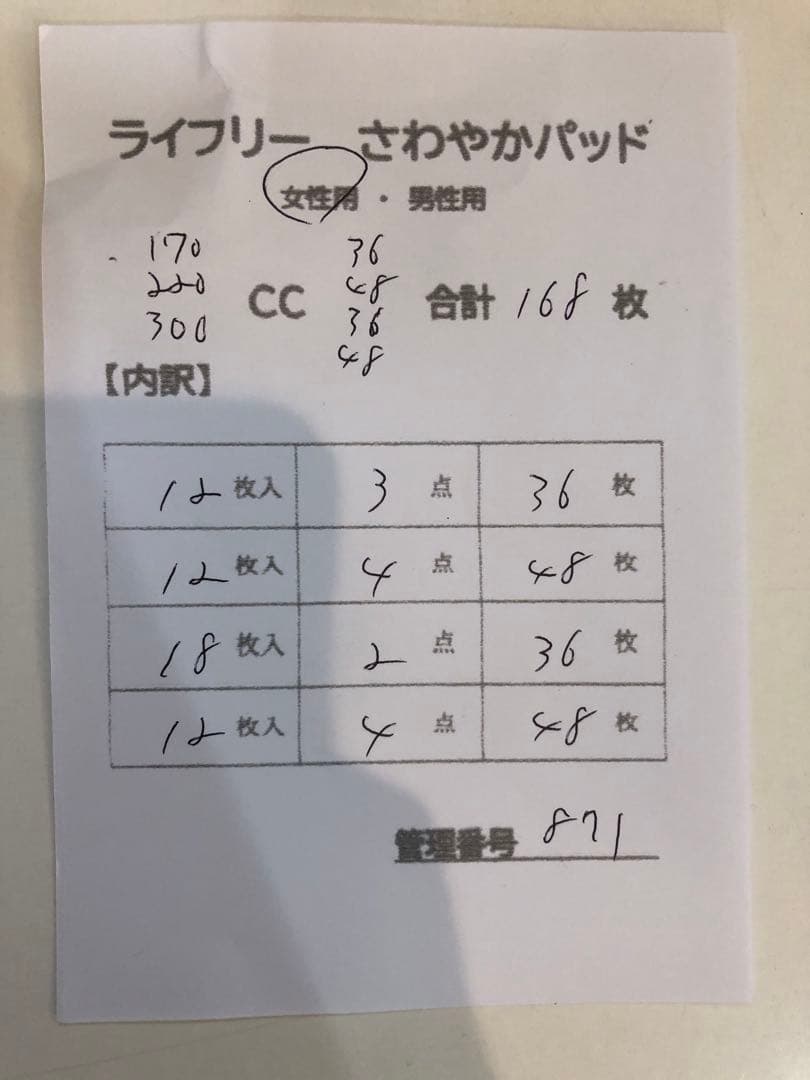 ライフリー さわやかパッド
女性用 ・ 男性用
170 36
220 CC 48 合計 168 枚
300 36
48
【内訳】
12 枚入 3 点 36 枚
12 枚入 4 点 48 枚
18 枚入 2 点 36 枚
12 枚入 4 点 48 枚
管理番号 871